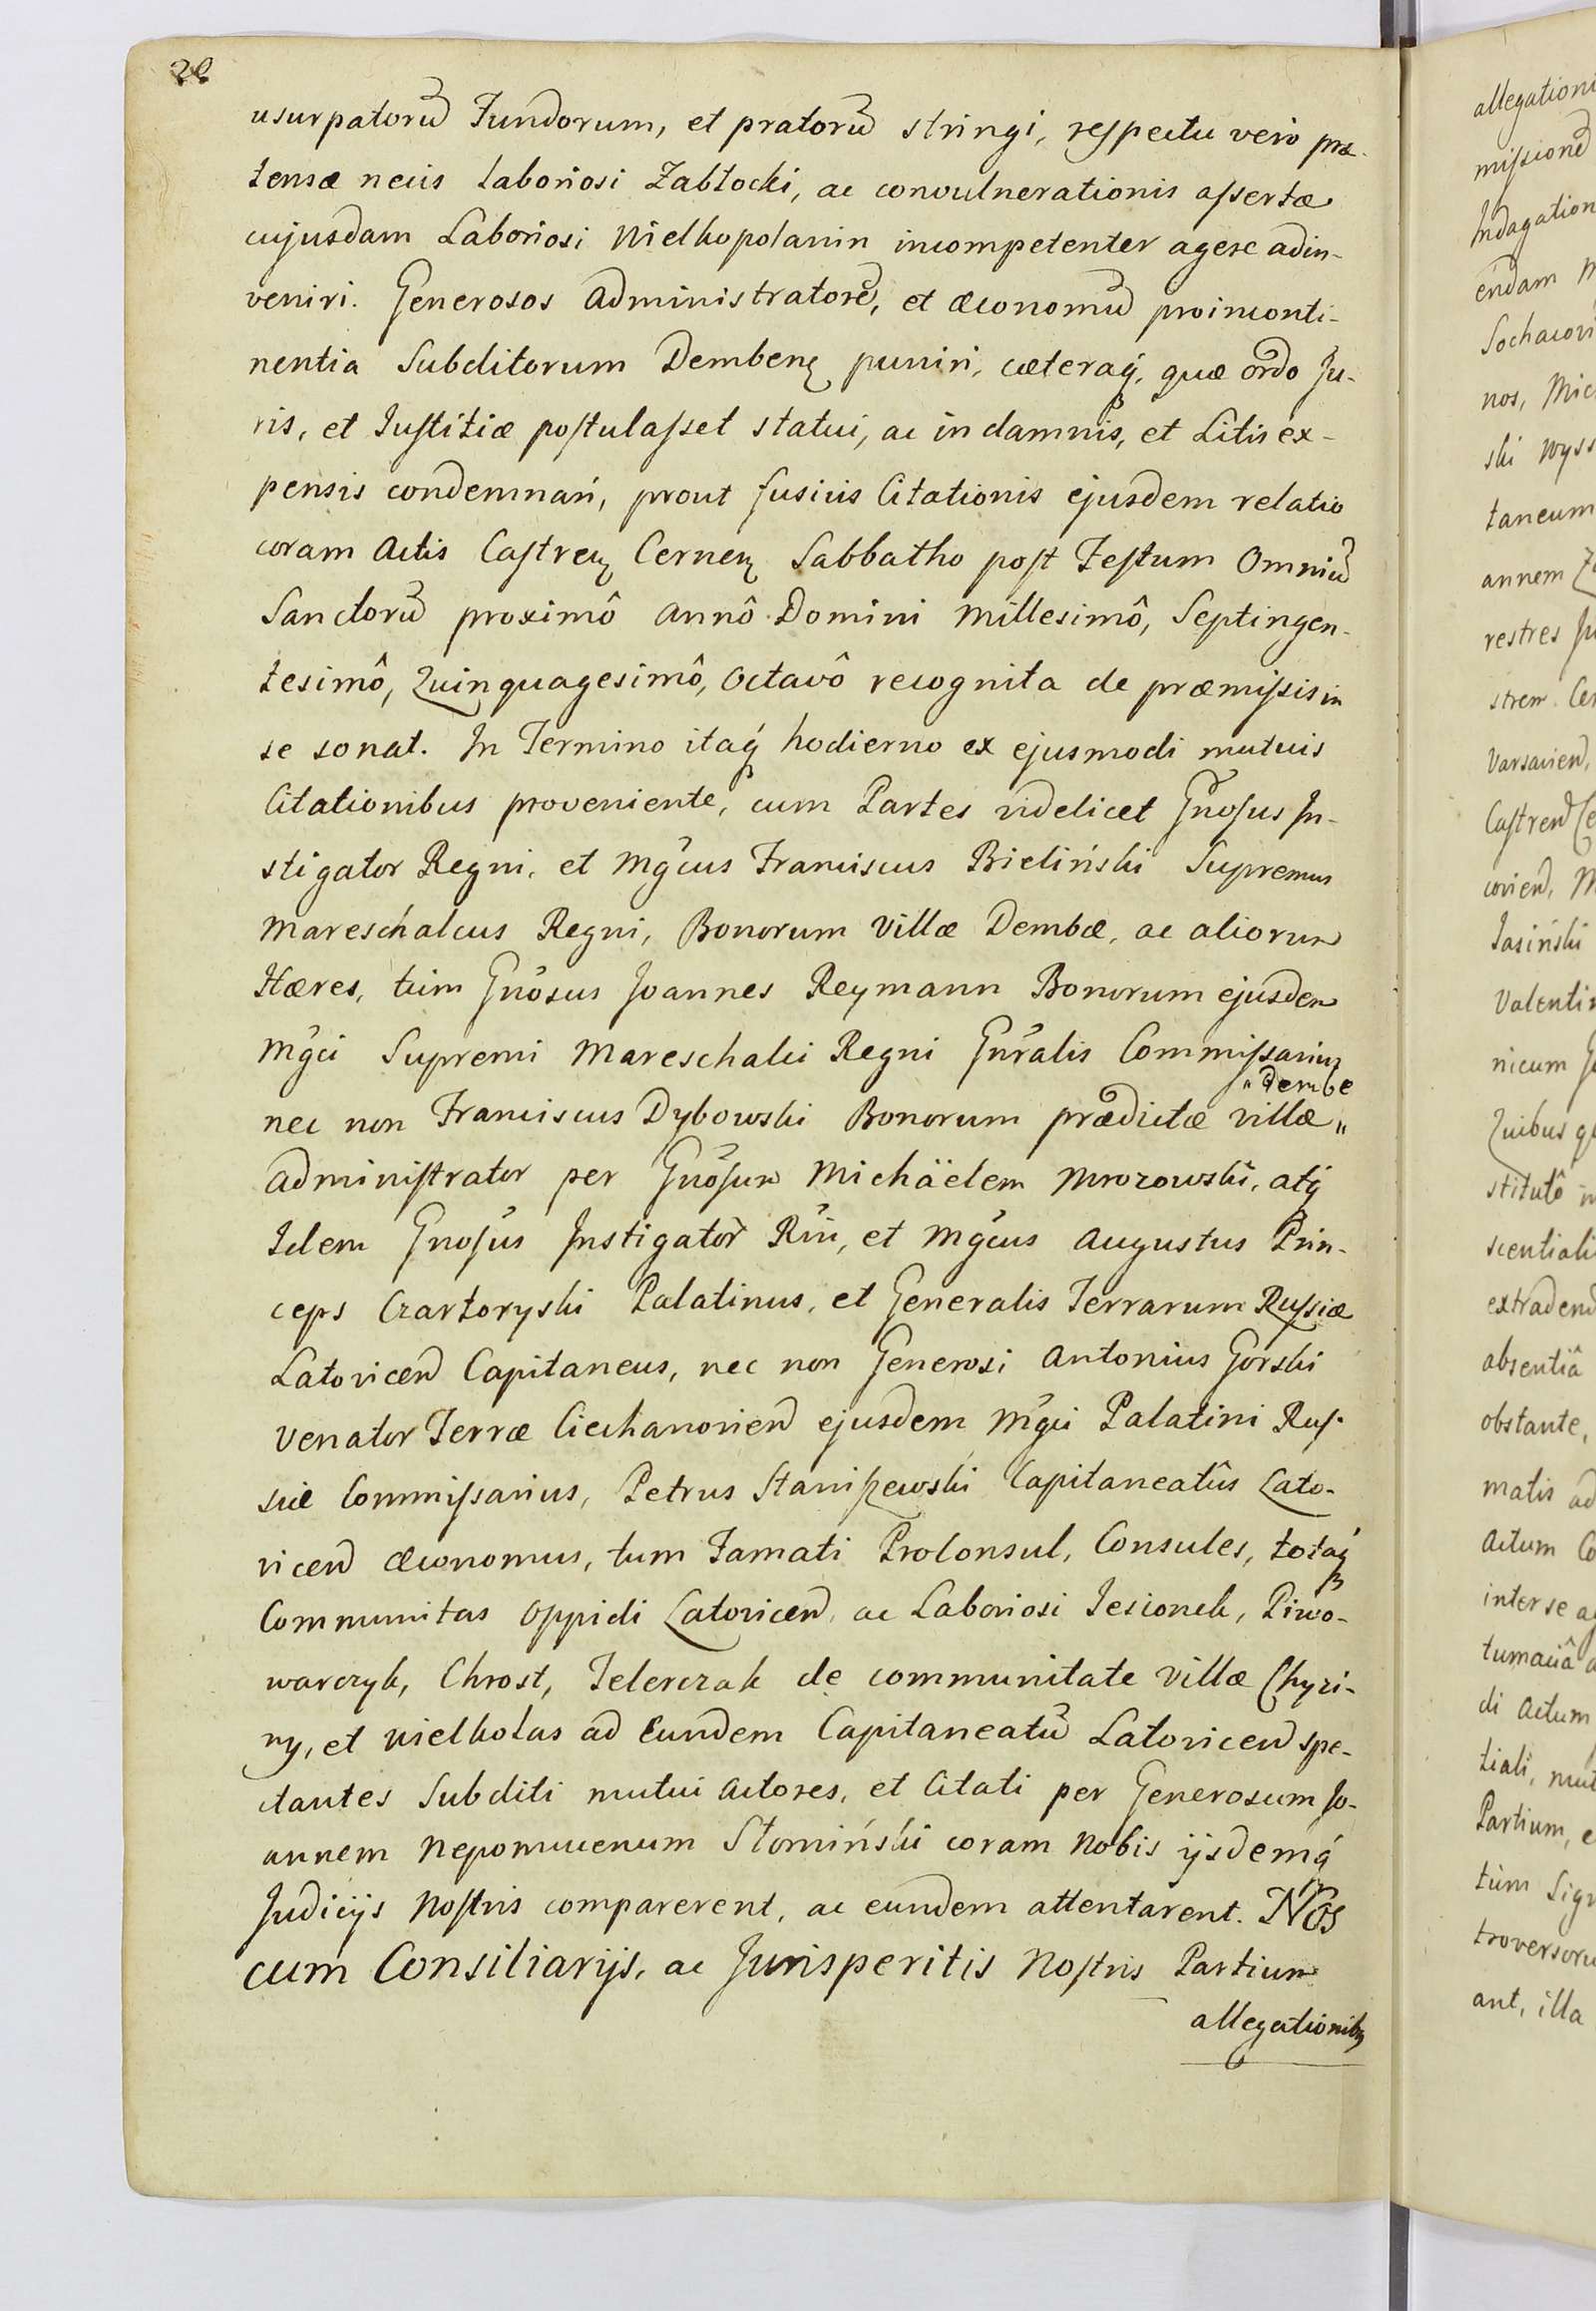 22
usurpatorũ Fundorum, et pratorũ stringi, respectu vero præ-
tensæ necis Laboriosi Zabłocki, ac convulnerationis assertæ
cujusdam Laboriosi Wielkopolanin incompetenter agere adin-
veniri. Generosos Administratorẽ, et Œconomũ pro incontinen-
nentia Subditorum Dembenẜ puniri, cæteraq́, quæ ordo Ju-
ris, et Justitiæ postulasset statui, ac in damnis, et Litis ex-
pensis condemnari, prout fusius Citationis ejusdem relatio
coram Actis Castrenẜ Cernenẜ Sabbatho post Festum Omniũ
Sanctorũ proximô Annô Domini Millesimô, Septingen-
tesimô, Quinquagesimô, Octavô recognita de præmissis in
se sonat. In Termino itaq́ hodierno ex ejusmodi mutuis
Citationibus proveniente, cum Partes videlicet Gnosus In-
stigator Regni, et Mgcus Franciscus Bieliński Supremus
Mareschalcus Regni, Bonorum Villæ Dembæ, ac aliorum
Hæres, tùm Gnosus Joannes Reymann Bonorum ejusdem
Mgci Supremi Mareschalci Regni Gnralis Commissarius
" dembe
nec non Franciscus Dybowski Bonorum prædictæ villæ "
Administrator per Gnosum Michäelem Mrozowski, atq́
Idem Gnosus Instigator Rni, et Mgcus Augustus Prin-
ceps Czartoryski Palatinus, et Generalis Terrarum Russiæ
Latovicen̄ Capitaneus, nec non Generosi Antonius Gorski
Venator Terræ Ciechanovien̄ ejusdem Mgci Palatini Rus-
siæ Commissarius, Petrus Staniszewski Capitaneatûs Lato-
vicen̄ Œconomus, tum Famati Proconsul, Consules, totaq́
Communitas Oppidi Latovicen̄, ac Laboriosi Jesionek, Piwo-
warczyk, Chrost, Telerczak de communitate villæ Chyzi-
ny, et Wielkolas ad Eundem Capitaneatũ Latovicen̄ spe-
ctantes Subditi mutui Actores, et Citati per Generosum Jo-
annem Nepomucenum Słomiński coram Nobis ijsdemq́
Judicijs Nostris comparerent, ac eundem attentarent. Nos
cum Consiliarijs, ac Jurisperitis Nostris Partium
allegationibꝫ